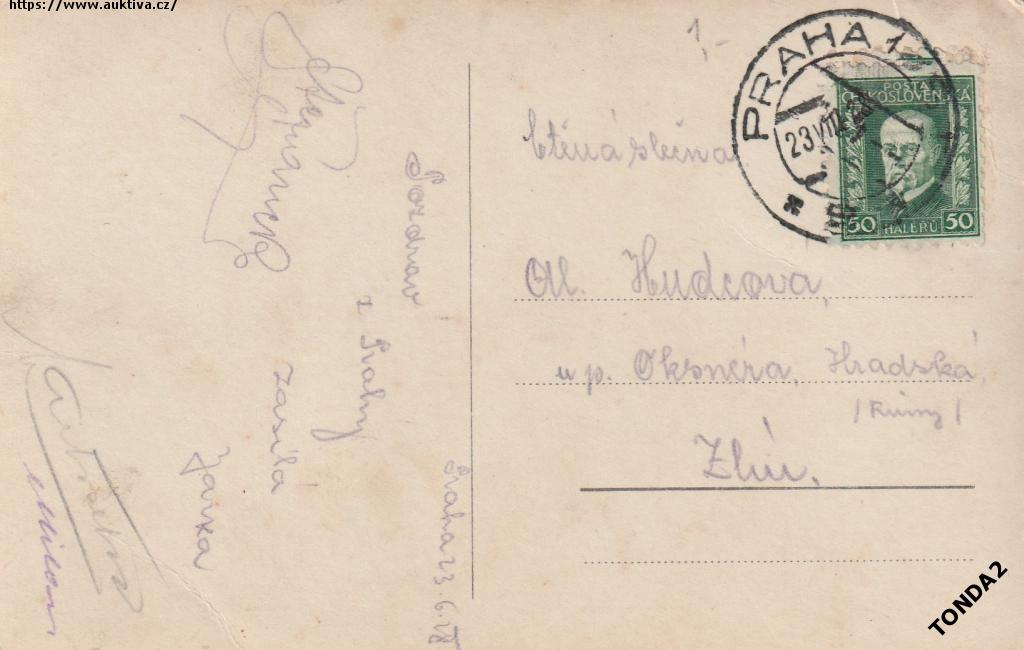 https://www.auktiva.cz/
1,-
PRAHA 1
23 VI
POŠTA
ČESKOSLOVENSKÁ
50 HALÉŘŮ 50
Ctěná slečna
Al. Hudcova,
u p. Oksnéra, Hradská,
Zlín.
Pozdrav
z Prahy
zasílá
Jarka
Praha 23.6.28
Milan
TONDA2